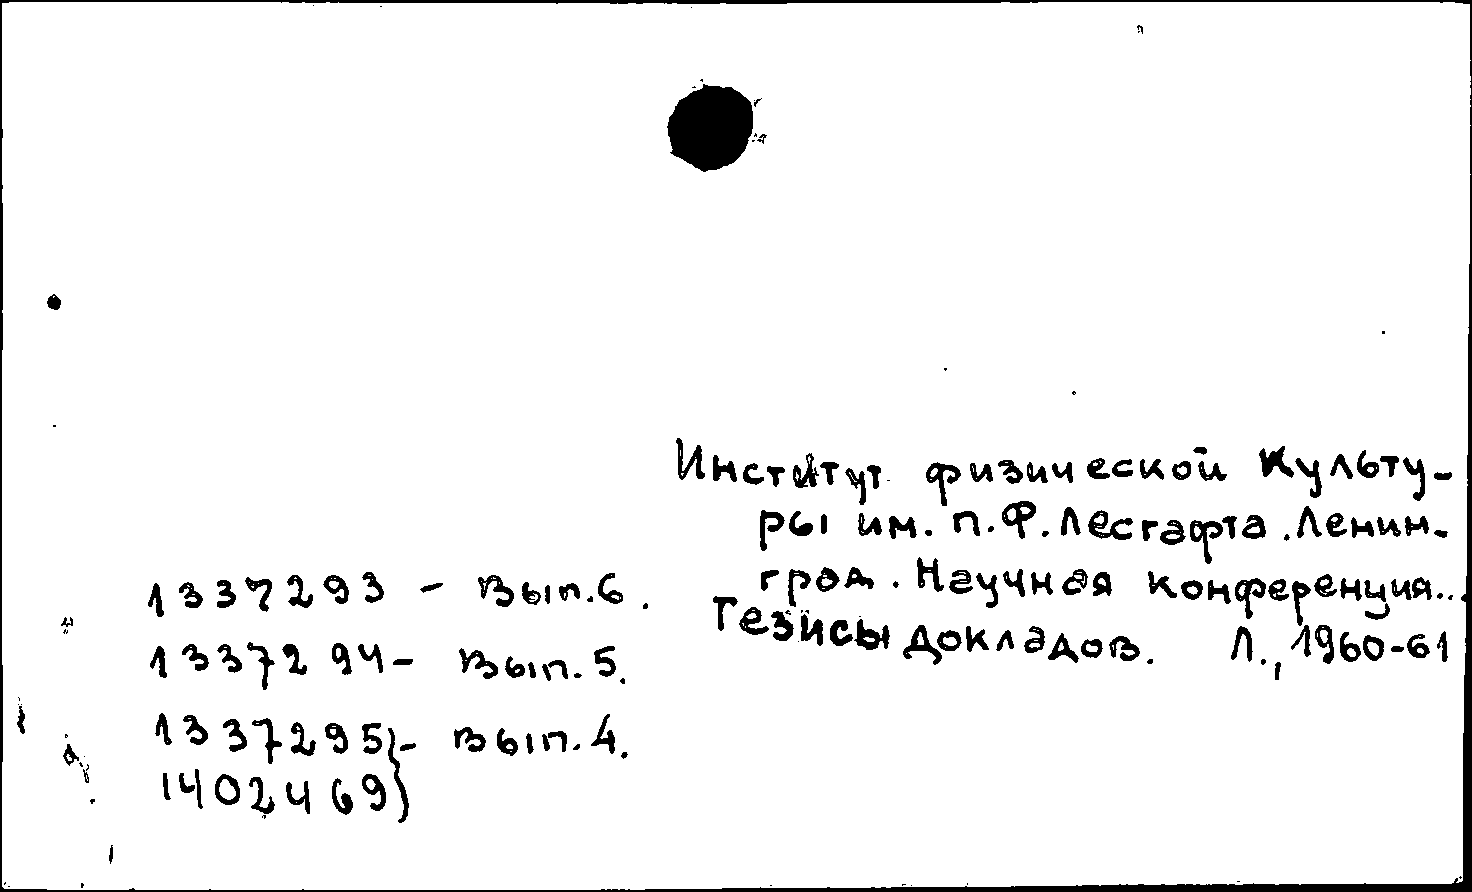 Институт физической Культу-
ры им. П.Ф. Лесгафта. Ленин-
град. Научная конференция...
Тезисы докладов. Л., 1960-61
1337293 - Вып. 6.
1337294 - Вып. 5.
1337295} - Вып. 4.
1402469}